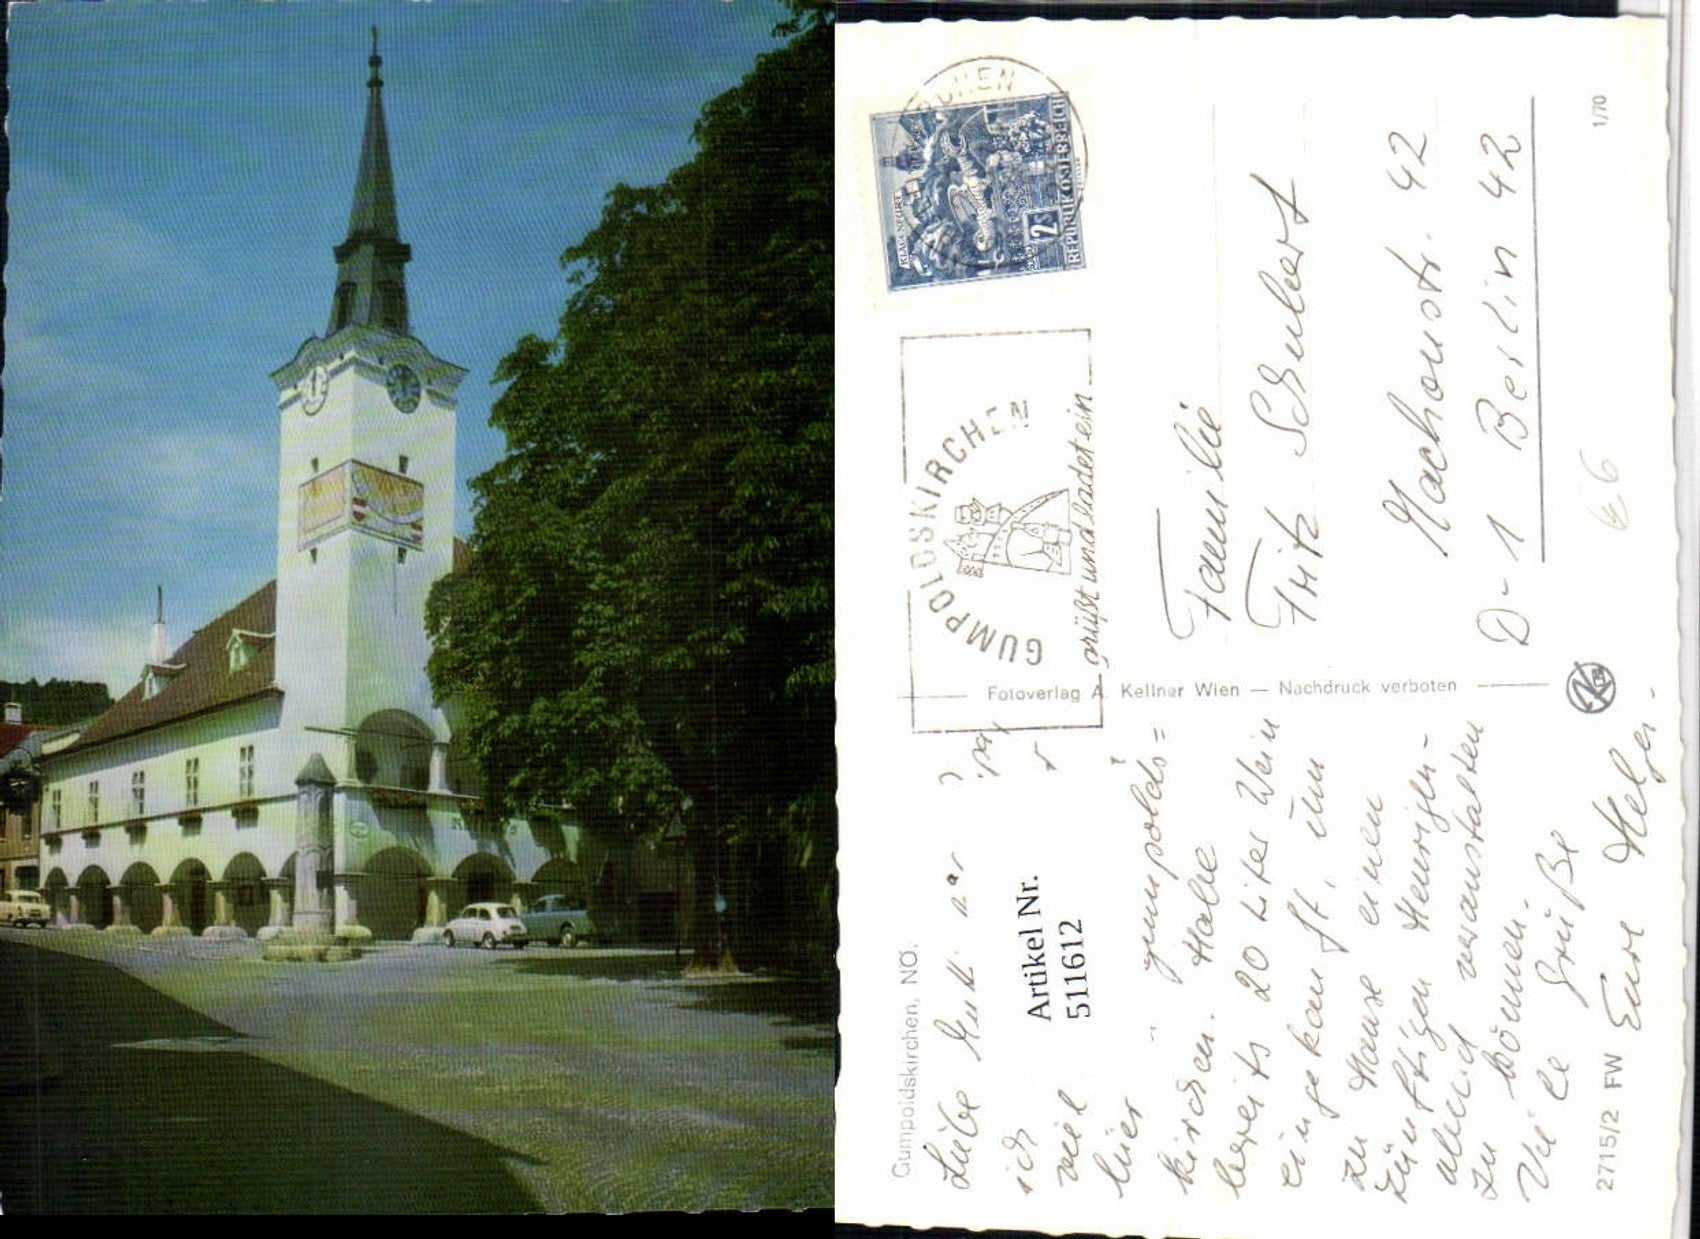 Gumpoldskirchen, NÖ.
Liebe Mutti
ich
viel
hier
gumpolds=
kirchen. Habe
bereits 20 Liter Wein
eingekauft, um
zu Hause einen
zünftigen Heurigen-
abend veranstalten
zu können.
Viele Grüße
Eure Helga
Artikel Nr.
511612
27115/2 FW
Fotoverlag A. Kellner Wien — Nachdruck verboten
GUMPOLDSKIRCHEN
grüßt und ladet ein
KLAGENFURT
2S
REPUBLIK ÖSTERREICH
Familie
Fritz Schubert
42
D-1 Berlin 42
66
1/70